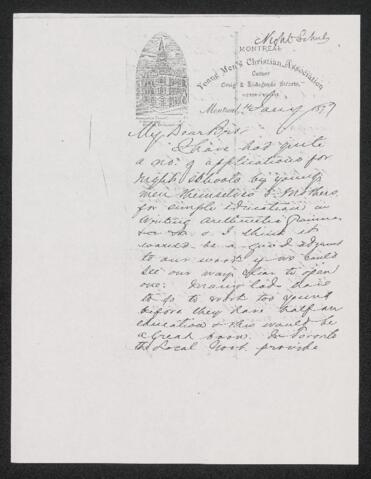 Night Schools
MONTREAL
Young Men's Christian Association
Corner
Craig & Radegonde Streets,
Montreal,
My Dear
I have had quite
a no. of applications for
Night Schools by young
men themselves & Mothers
for simple Education in
writing Arithmetic Grammar
&c &c & I think it
would be a grand adjunct
to our work if we could
see our way clear to open
one. Many lads have
to go to work too young
before they have half an
education & this would be
a Great boon. In Toronto
the Local Govt. provide